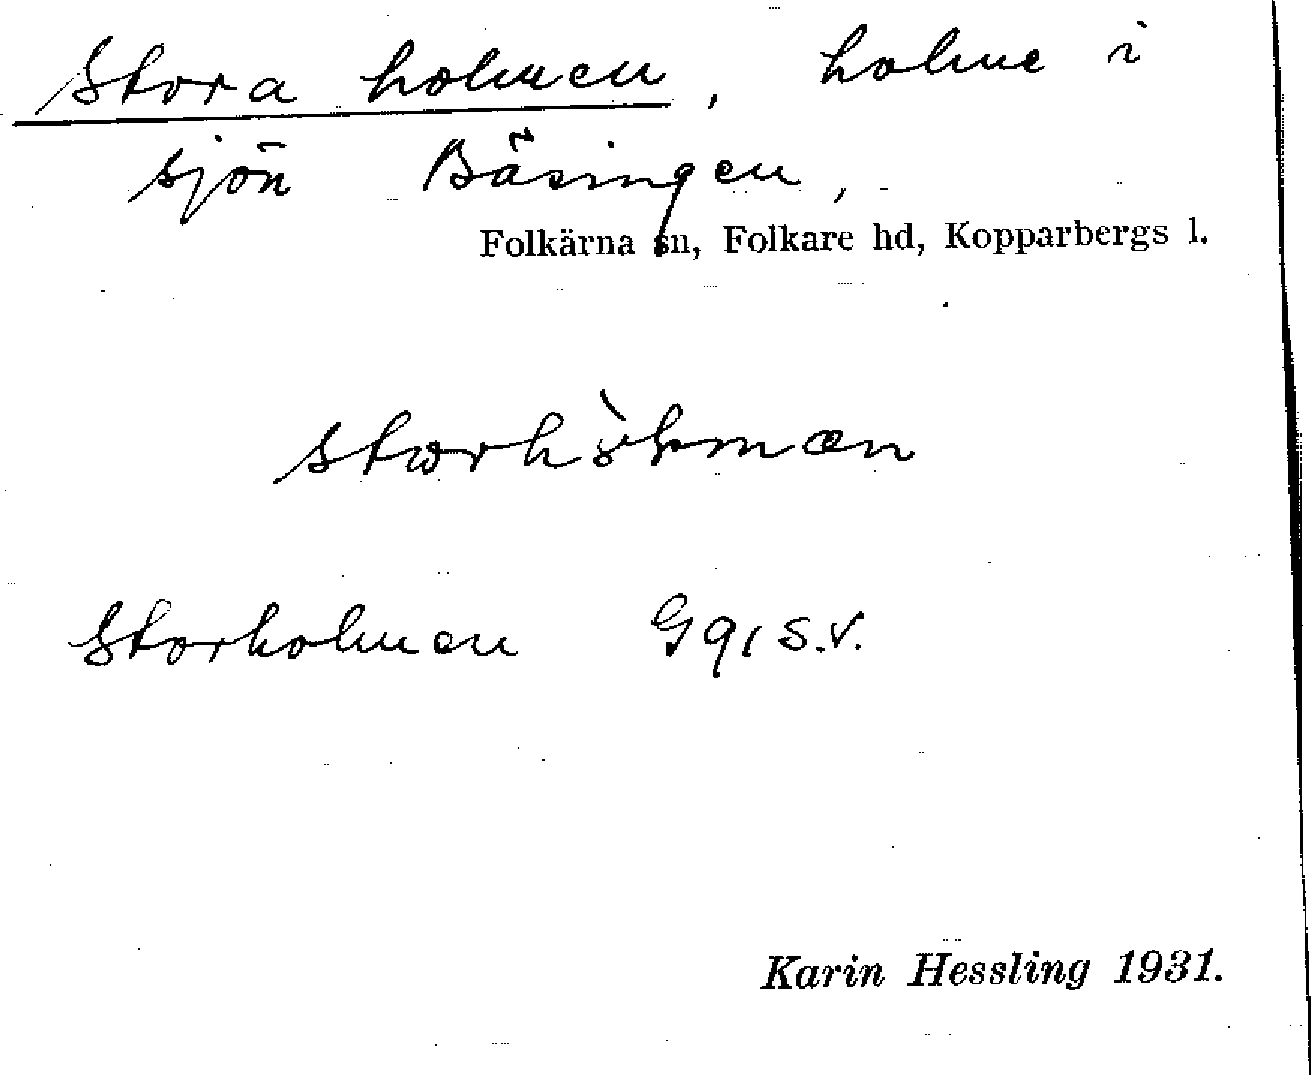 Stora holmen, holme i
sjön Bäsingen,
Folkärna sn, Folkare hd, Kopparbergs l.
Storholmen G 91 S.V.
Karin Hessling 1931.